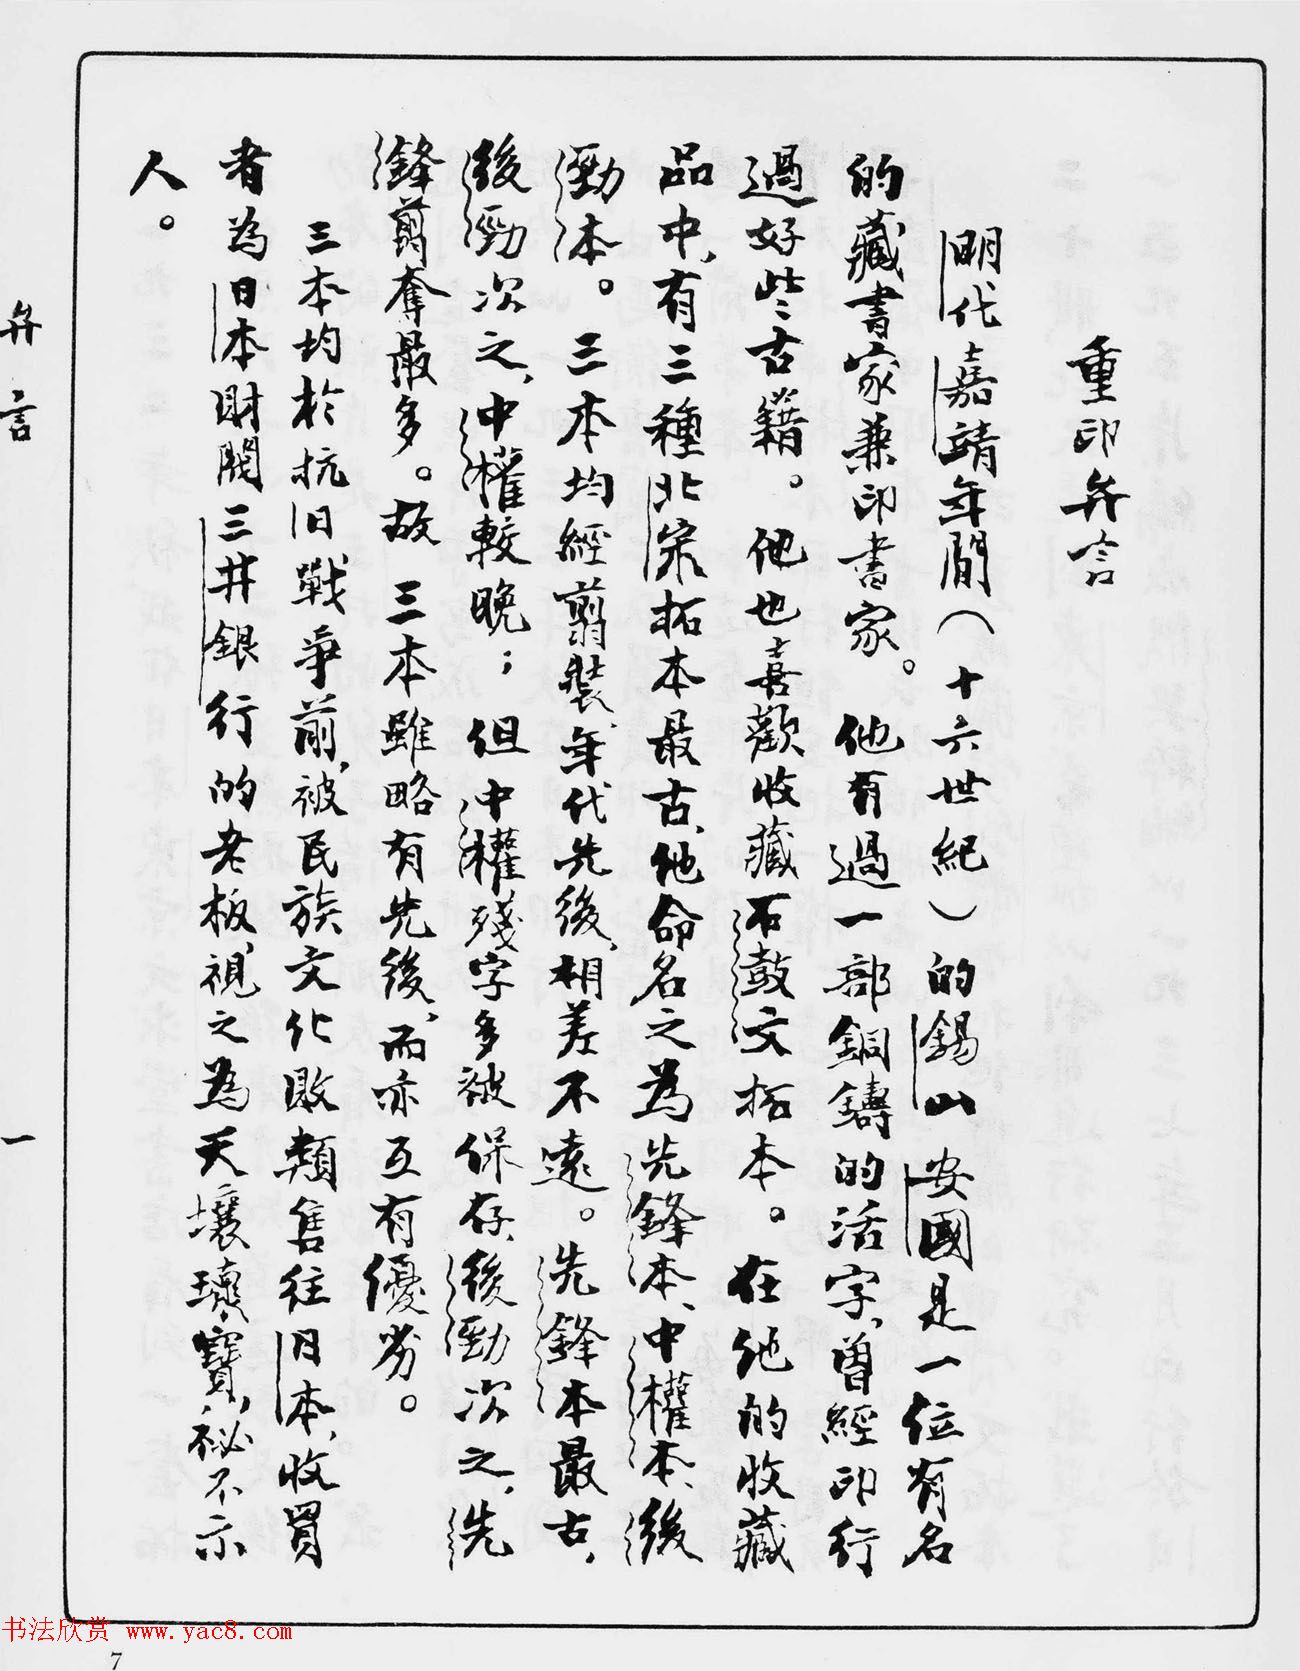 重印弁言
明代嘉靖年間(十六世紀)的錫山安國是一位有名
的藏書家兼印書家。他有過一部銅鑄的活字,曾經印行
過好些古籍。他也喜歡收藏石鼓文拓本。在他的收藏
品中,有三種北宋拓本最古,他命名之為先鋒本、中權本、後
勁本。三本均經剪裝,年代先後,相差不遠。先鋒本最古,
後勁次之,中權較晚;但中權殘字多被保存,後勁次之,先
鋒剪奪最多。故三本雖略有先後,而亦互有優劣。
三本均於抗日戰爭前,被民族文化敗類售往日本,收買
者為日本財閥三井銀行的老板,視之為天壤瓌寶,秘不示
人。
弁言
一
书法欣赏 www.yac8.com
7